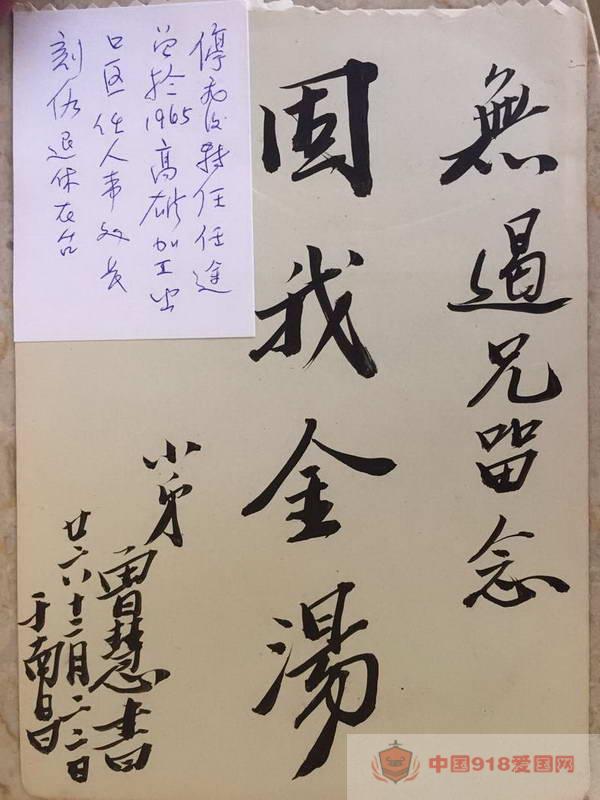 無遏兄留念
固我金湯
小弟
曾慧書
廿六十二月二二日
于南昌
曾於1965高雄加工出
口区任人事处长
刻仍退休在台
中国918爱国网